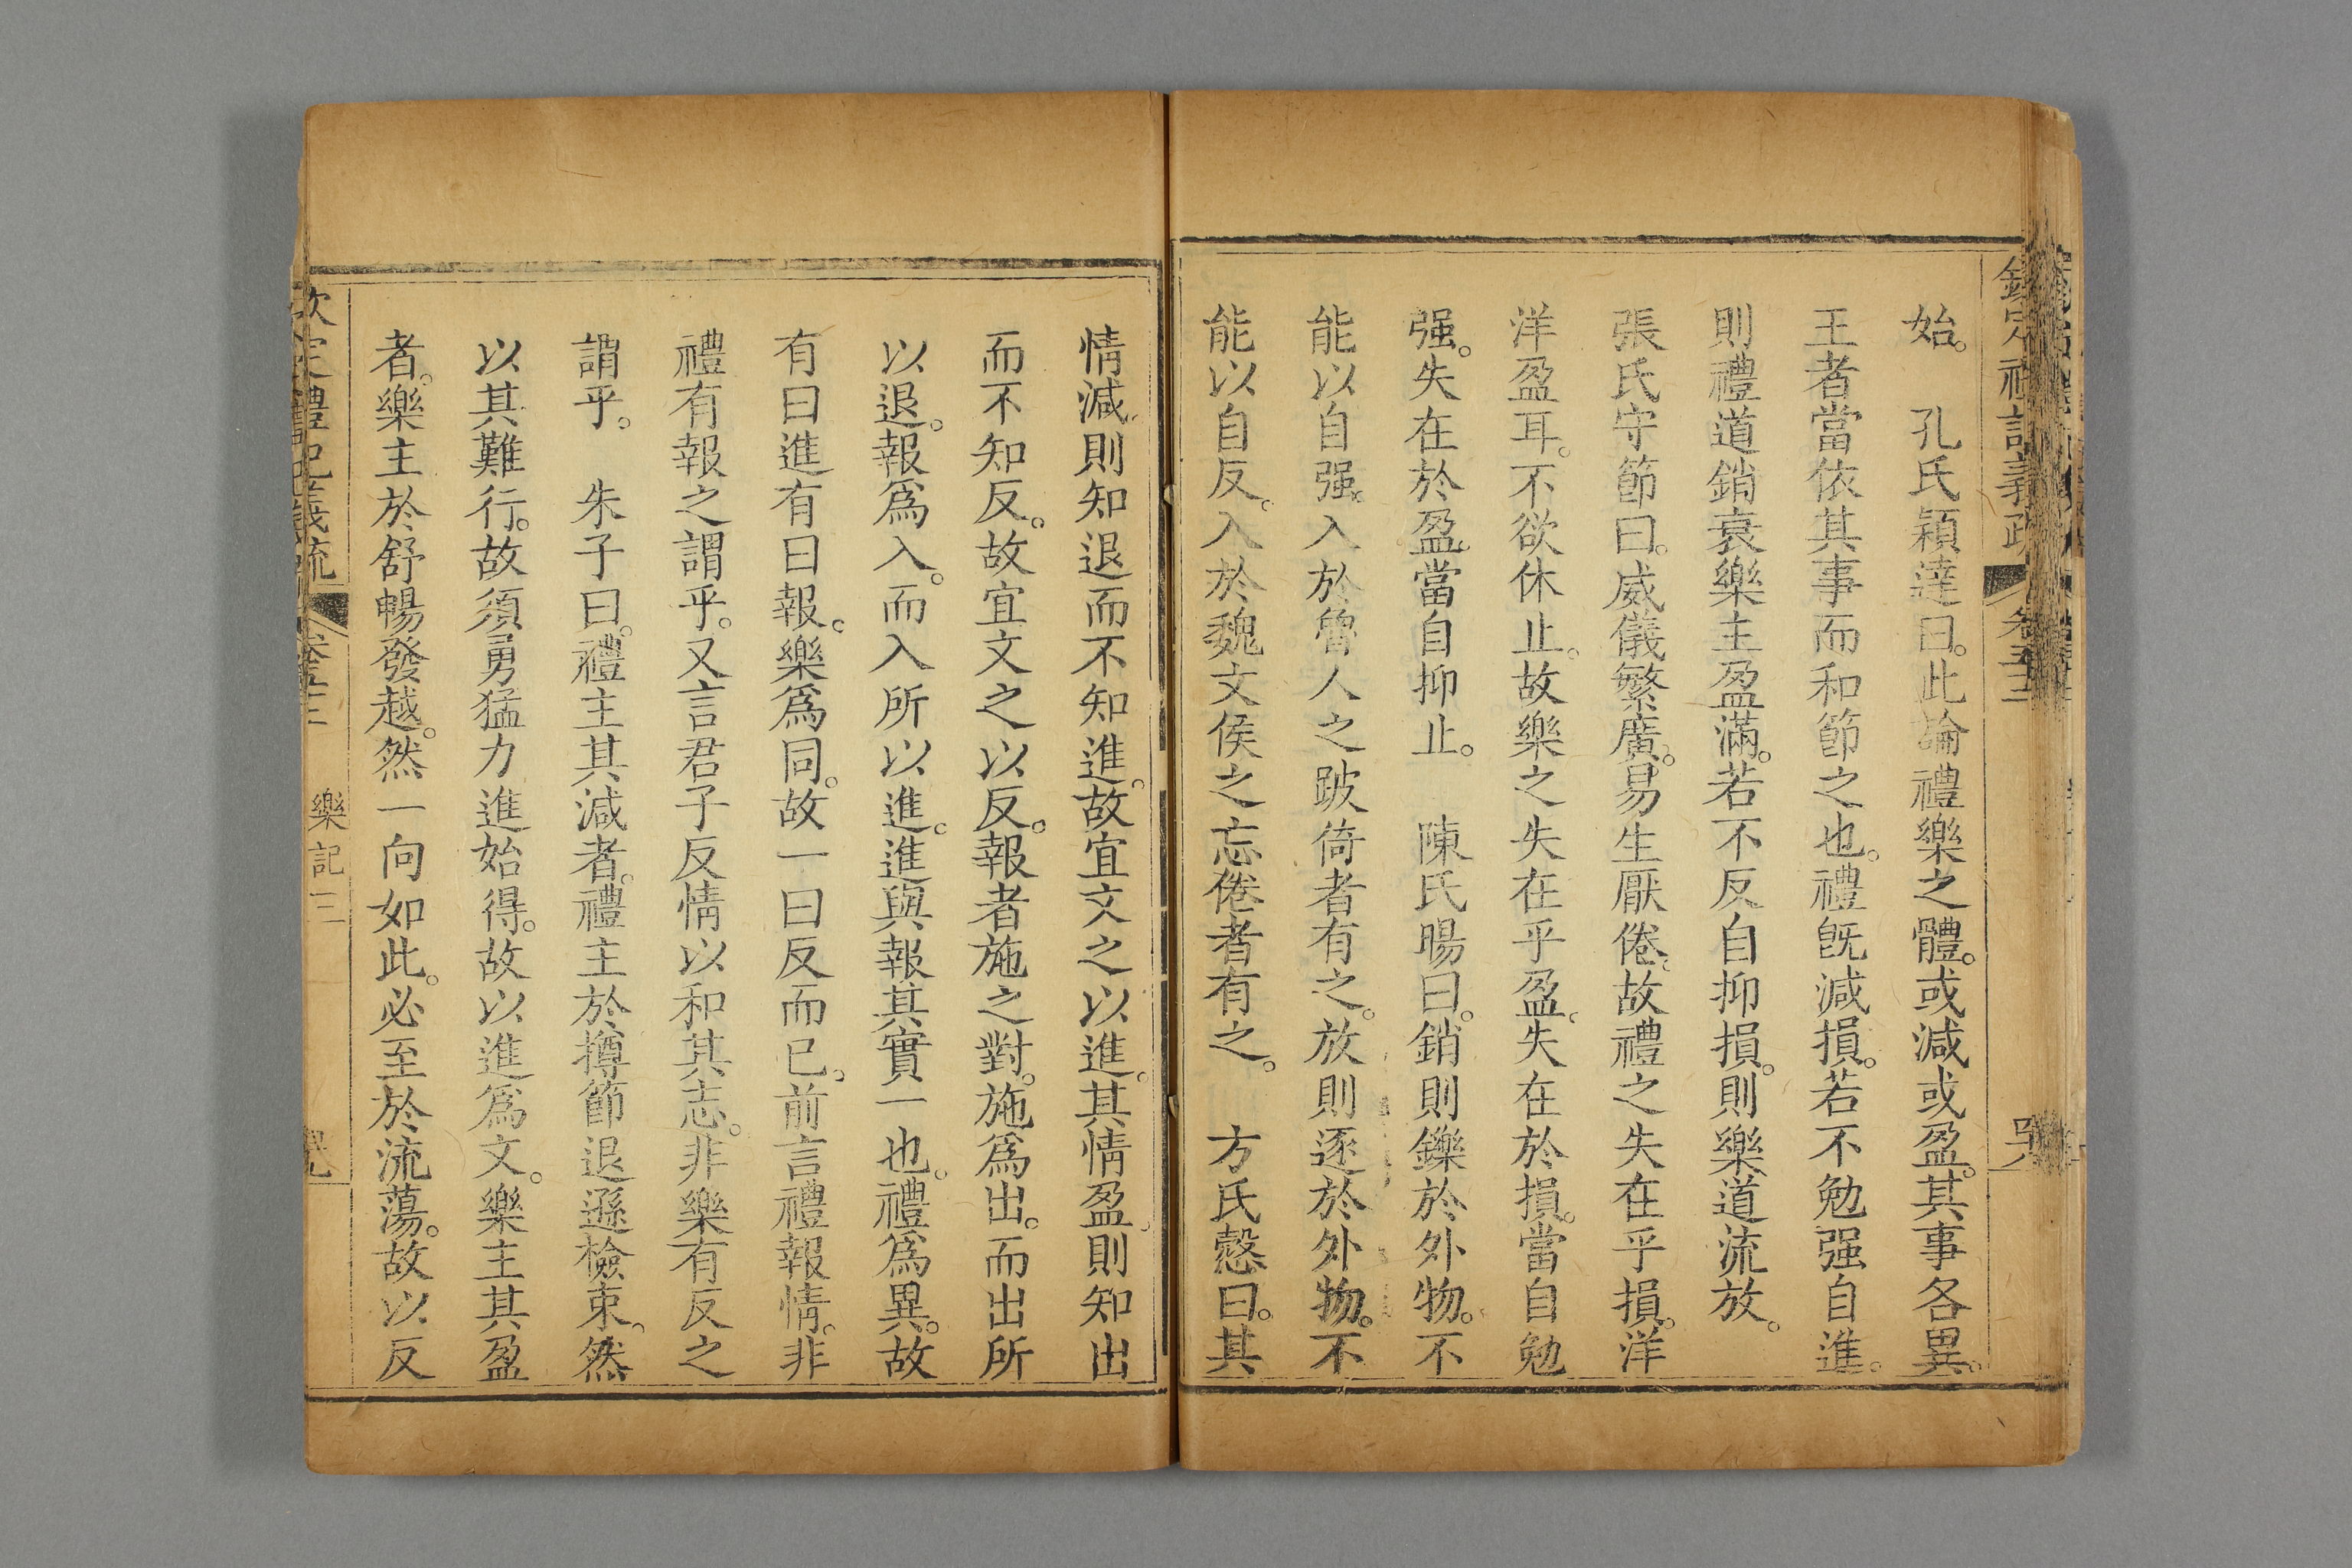 始。　孔氏穎達曰。此論禮樂之體。或減或盈。其事各異。
王者當依其事而和節之也。禮旣減損。若不勉强自進。
則禮道銷衰樂主盈滿。若不反自抑損。則樂道流放。
張氏守節曰。威儀繁廣。易生厭倦。故禮之失在乎損。洋
洋盈耳。不欲休止。故樂之失在乎盈。失在於損。當自勉
强。失在於盈。當自抑止。　陳氏暘曰。銷則鑠於外物。不
能以自强。入於魯人之跛倚者有之。放則逐於外物。不
能以自反。入於魏文侯之忘倦者有之。　方氏慤曰。其
情減。則知退而不知進。故宜文之以進。其情盈。則知出
而不知反。故宜文之以反。報者施之對。施爲出。而出所
以退。報爲入。而入所以進。進與報其實一也。禮爲異。故
有曰進有曰報。樂爲同。故一曰反而已。前言禮報情。非
禮有報之謂乎。又言君子反情以和其志。非樂有反之
謂乎。　朱子曰。禮主其減者。禮主於撙節退遜檢束。然
以其難行。故須勇猛力進始得。故以進爲文。樂主其盈
者。樂主於舒暢發越。然一向如此。必至於流蕩。故以反
欽定禮記義疏
樂記三